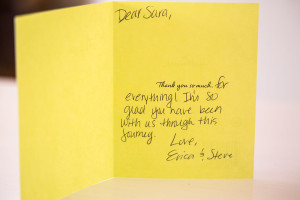 Dear Sara,
Thank you so much. for
everything! I'm so
glad you have been
with us through this
journey.
Love,
Erica & Steve